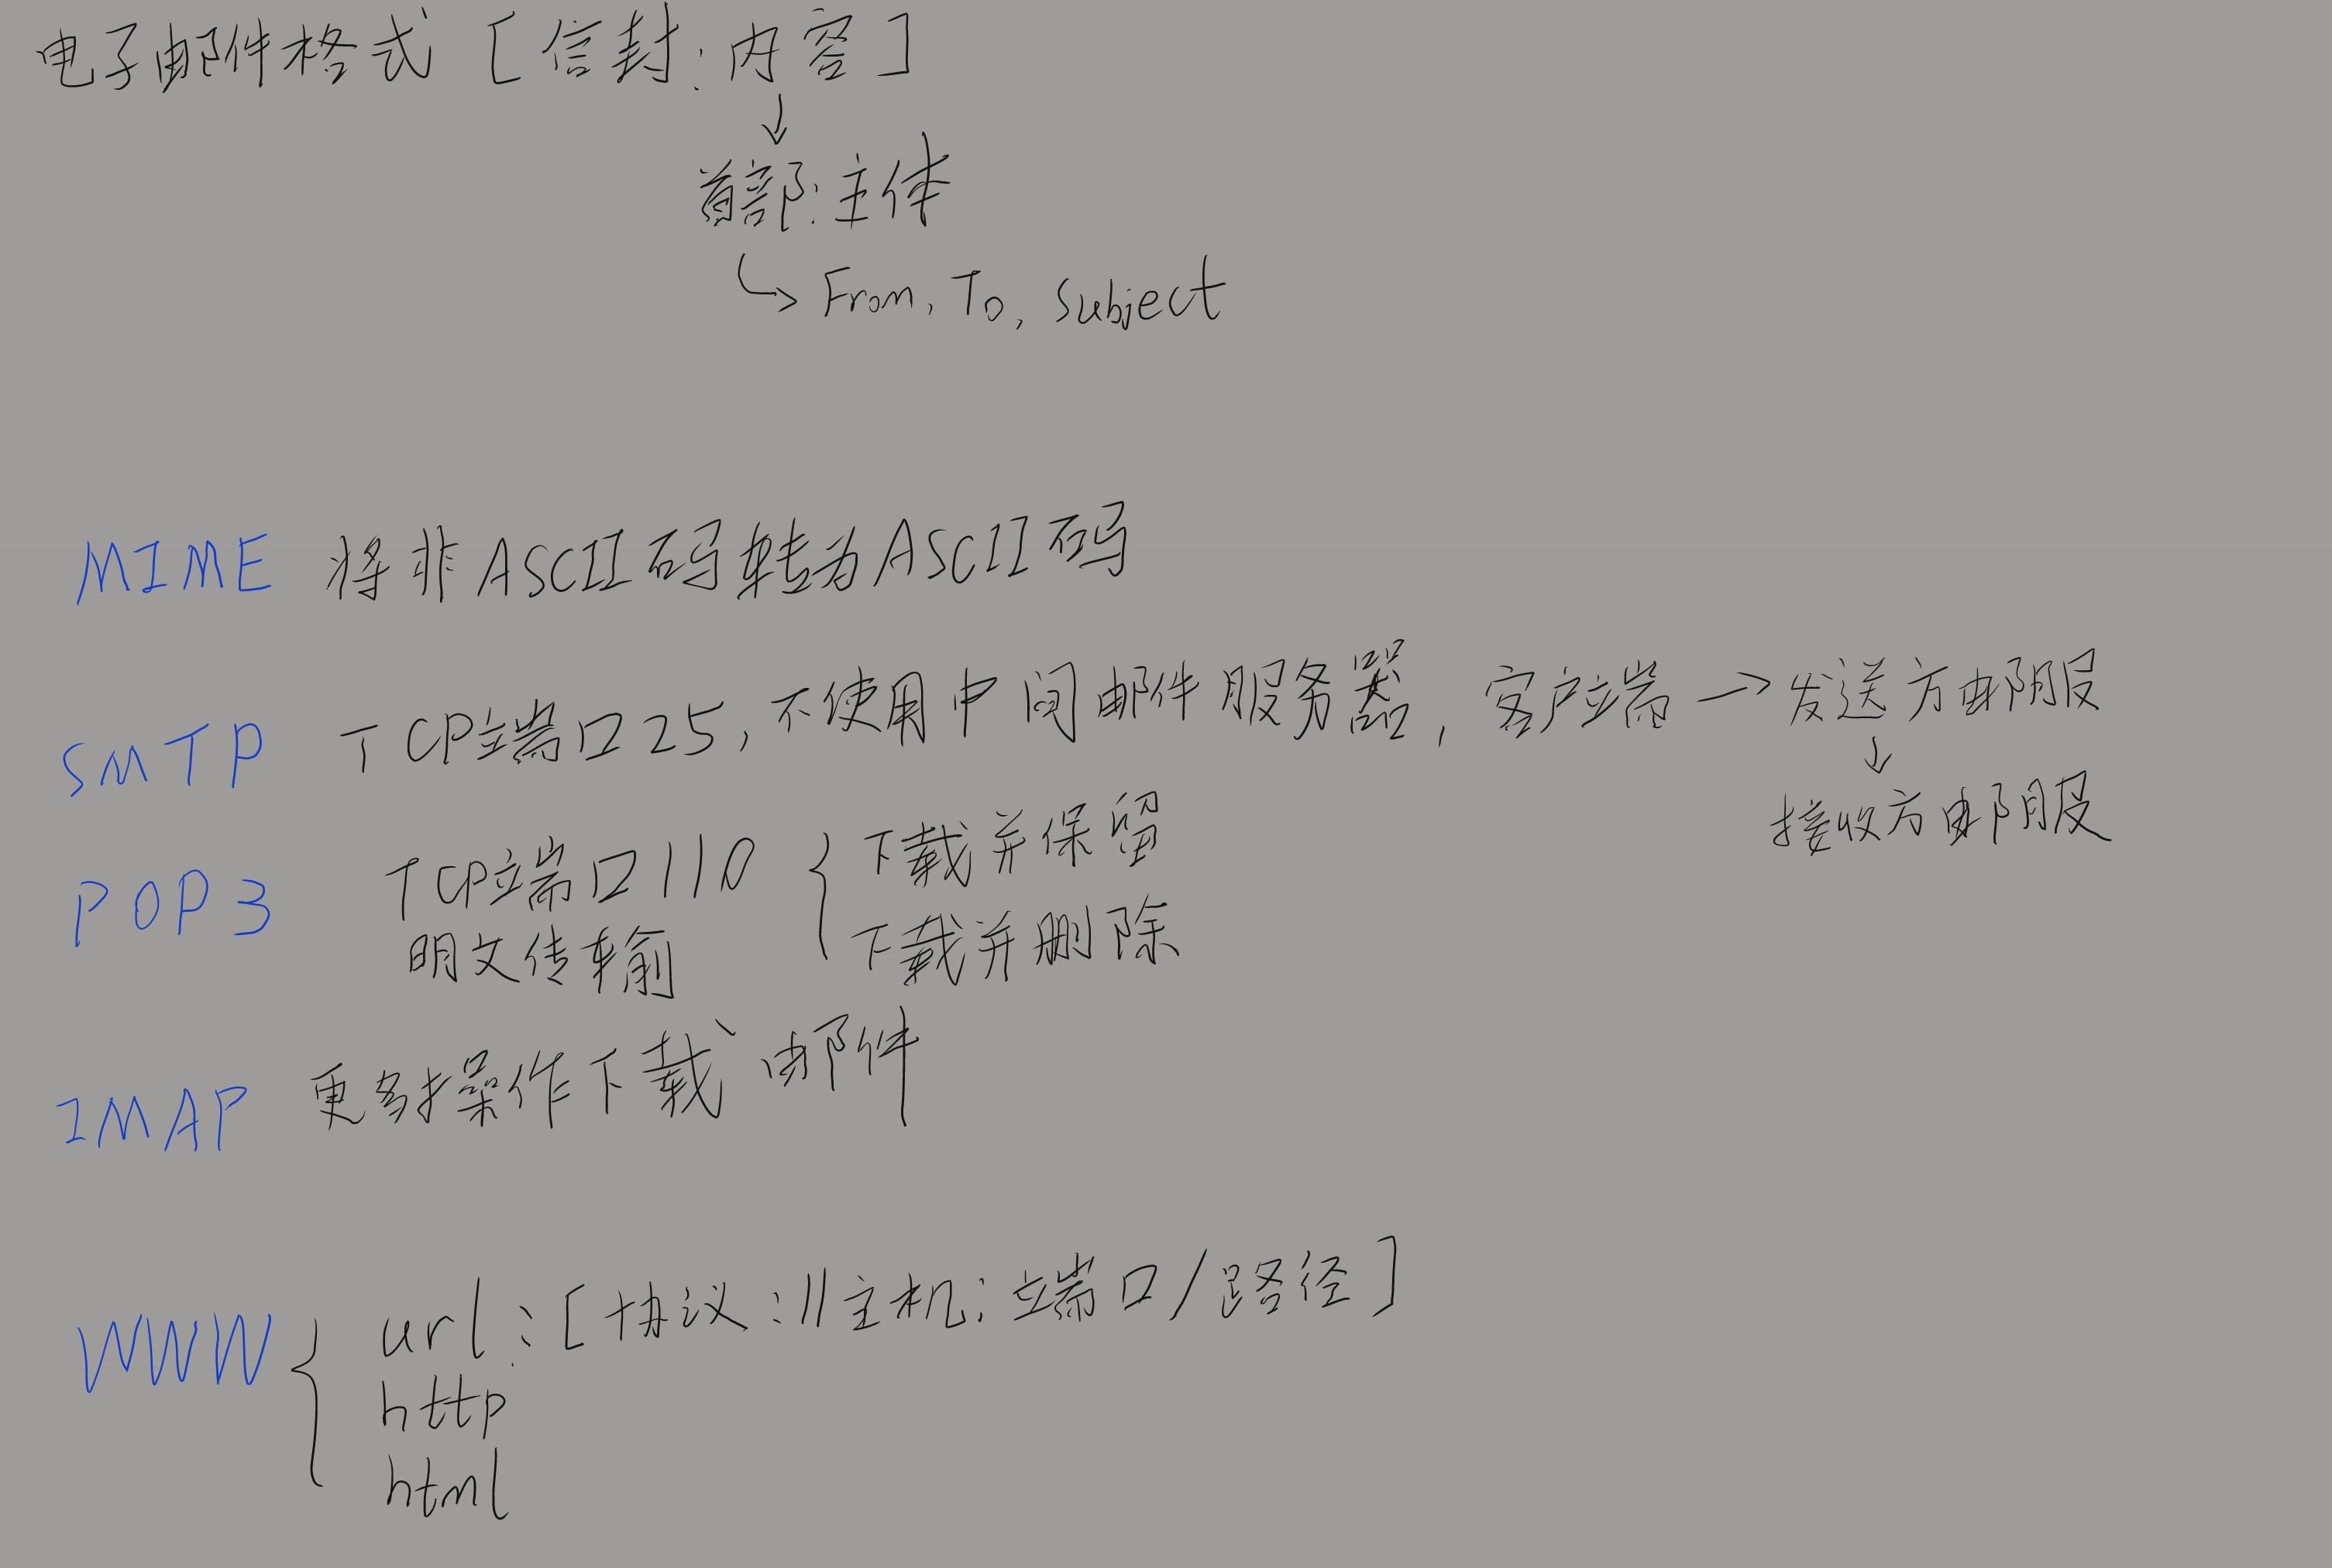 电子邮件格式 [信封:内容]
↓
首部:主体
↳ From, To, Subject
MIME 将非ASCII码转为ASCII码
SMTP TCP端口25,不使用中间邮件服务器,客户端→发送方邮服
↓
接收方邮服
POP3 TCP端口110 { 下载并保留
明文传输 下载并删除
IMAP 更多操作下载邮件
WWW { url:[协议://主机:端口/路径]
http
html